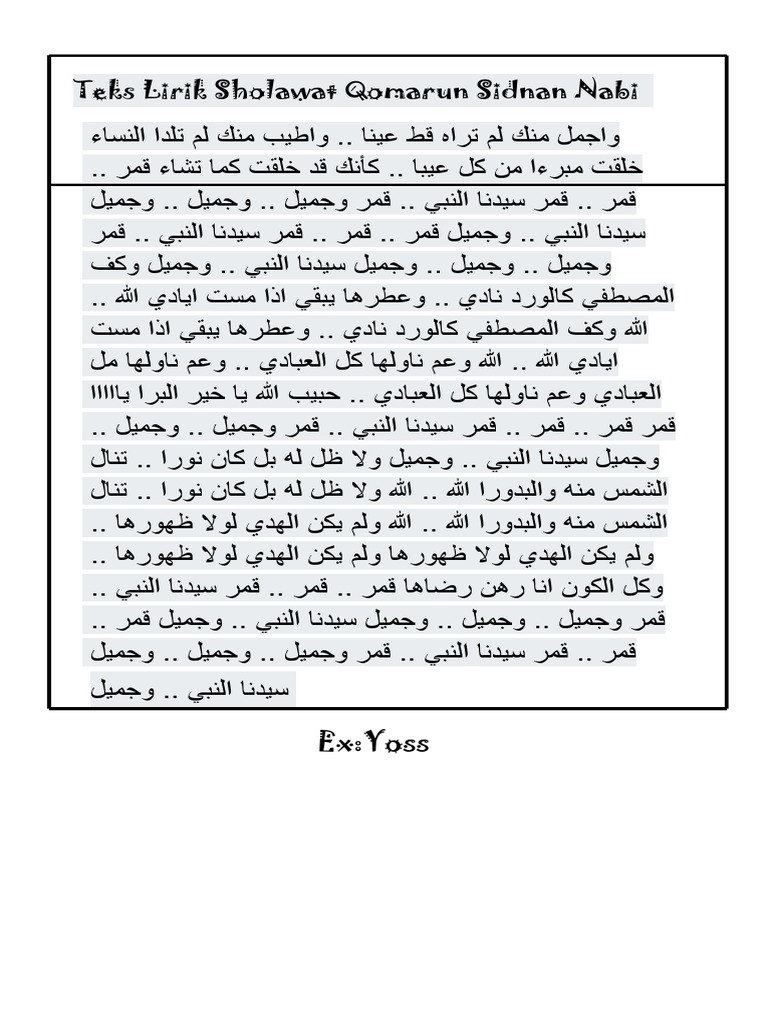 Teks Lirik Sholawat Qomarun Sidnan Nabi
واجمل منك لم تراه قط عينا .. واطيب منك لم تلدا النساء
خلقت مبرءا من كل عيبا .. كأنك قد خلقت كما تشاء قمر ..
قمر .. قمر سيدنا النبي .. قمر وجميل .. وجميل .. وجميل
سيدنا النبي .. وجميل قمر .. قمر .. قمر سيدنا النبي .. قمر
وجميل .. وجميل .. وجميل سيدنا النبي .. وجميل وكف
المصطفي كالورد نادي .. وعطرها يبقي اذا مست ايادي الله ..
الله وكف المصطفي كالورد نادي .. وعطرها يبقي اذا مست
ايادي الله .. الله وعم ناولها كل العبادي .. وعم ناولها مل
العبادي وعم ناولها كل العبادي .. حبيب الله يا خير البرا يااااا
قمر قمر .. قمر .. قمر سيدنا النبي .. قمر وجميل .. وجميل ..
وجميل سيدنا النبي .. وجميل ولا ظل له بل كان نورا .. تنال
الشمس منه والبدورا الله .. الله ولا ظل له بل كان نورا .. تنال
الشمس منه والبدورا الله .. الله ولم يكن الهدي لولا ظهورها ..
ولم يكن الهدي لولا ظهورها ولم يكن الهدي لولا ظهورها ..
وكل الكون انا رهن رضاها قمر .. قمر .. قمر سيدنا النبي ..
قمر وجميل .. وجميل .. وجميل سيدنا النبي .. وجميل قمر ..
قمر .. قمر سيدنا النبي .. قمر وجميل .. وجميل .. وجميل
سيدنا النبي .. وجميل
Ex:Yoss